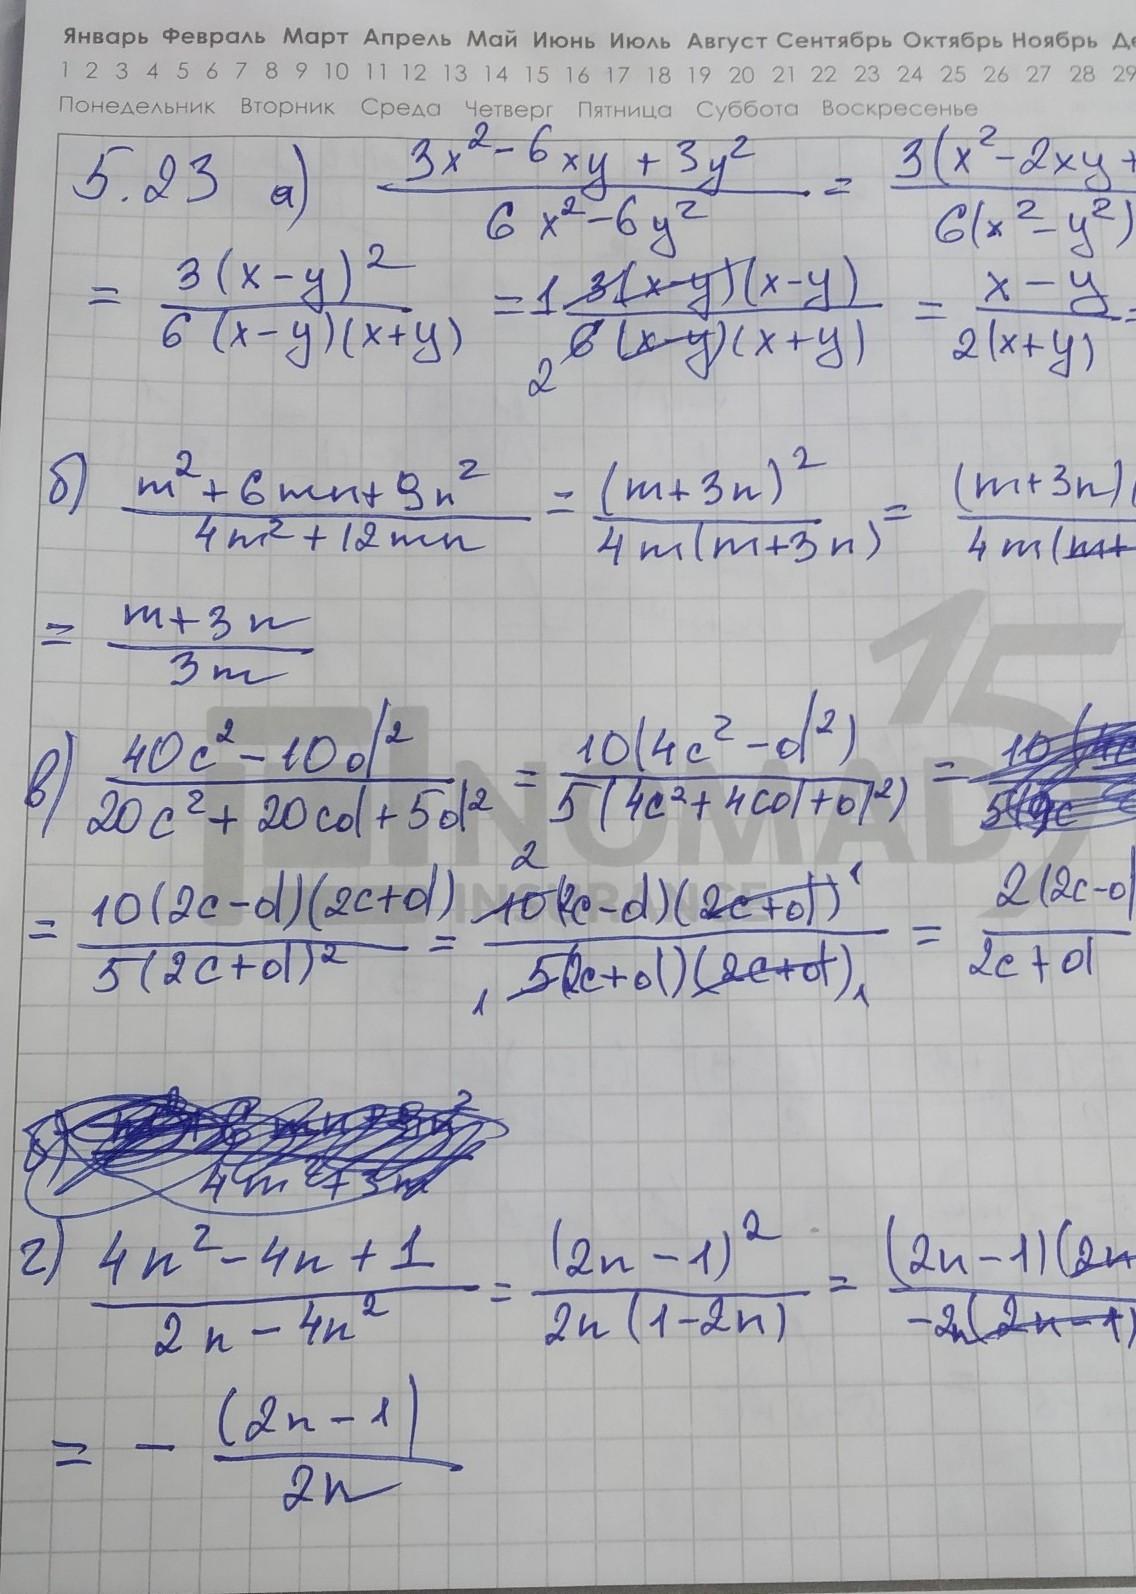 Январь Февраль Март Апрель Май Июнь Июль Август Сентябрь Октябрь Ноябрь Де
1 2 3 4 5 6 7 8 9 10 11 12 13 14 15 16 17 18 19 20 21 22 23 24 25 26 27 28 29
Понедельник Вторник Среда Четверг Пятница Суббота Воскресенье
5.23 а) (3x² - 6xy + 3y²)/(6x² - 6y²) = 3(x² - 2xy +/6(x² - y²)
= 3(x-y)²/6(x-y)(x+y) = 1 3(x-y)(x-y)/2 6(x-y)(x+y) = x-y/2(x+y) =
б) m² + 6mn + 9n²/4m² + 12mn = (m+3n)²/4m(m+3n) = (m+3n)(/4m(m+
= m+3n/3m
15
в) 40c² - 10d²/20c² + 20cd + 5d² = 10(4c² - d²)/5(4c² + 4cd + d²) =
NOMAD
= 10(2c-d)(2c+d)/5(2c+d)² = 2 10(2c-d)(2c+d) 1/1 5(2c+d)(2c+d) 1 = 2(2c-d/2c+d
г) 4n² - 4n + 1/2n - 4n² = (2n - 1)²/2n(1-2n) = (2n-1)(2n/-2n(2n-1)
= - (2n-1)/2n